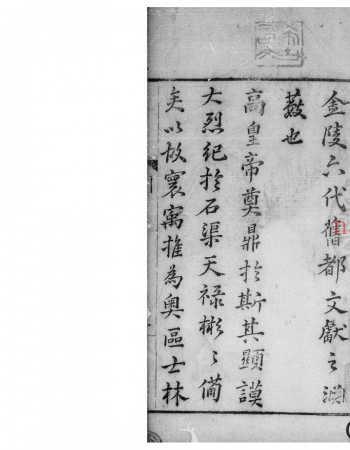 金陵六代舊都文獻之淵
藪也
高皇帝奠鼎於斯其顯謨
大烈紀於石渠天禄彬〻備
矣以故寰寓推為奧區士林